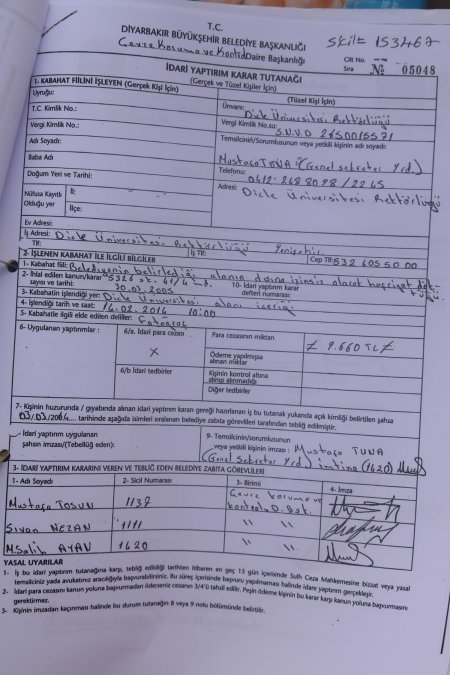 T.C.
DİYARBAKIR BÜYÜKŞEHİR BELEDİYE BAŞKANLIĞI
Çevre Koruma ve Kontrol Daire Başkanlığı
153467
Cilt No.
İDARİ YAPTIRIM KARAR TUTANAĞI
Sıra № 05048
(Gerçek ve Tüzel Kişiler İçin)
1- KABAHAT FİİLİNİ İŞLEYEN (Gerçek Kişi İçin)
(Tüzel Kişi İçin)
Uyruğu:
Ünvanı:
Dicle Üniversitesi Rektörlüğü
T.C. Kimlik No.:
Vergi Kimlik No.su:
Vergi Kimlik No.:
Temsilcinin/Sorumlusunun veya yetkili kişinin adı soyadı:
Adı Soyadı:
Mustafa TUNA (Genel Sekreter Yrd.)
Baba Adı
Telefonu:
0412 248 8098 / 2245
Doğum Yeri ve Tarihi:
Adresi: Dicle Üniversitesi Rektörlüğü
Nüfusa Kayıtlı Olduğu yer
İl:
İlçe:
Ev Adresi:
İş Adresi: Dicle Üniversitesi Rektörlüğü Yenişehir
Tlf:
İş Tlf:
Cep Tlf: 532 405 50 00
2- İŞLENEN KABAHAT İLE İLGİLİ BİLGİLER
1- Kabahat fiili: Belediyenin belirlediği alanın dışına izinsiz olarak hafriyat
2- İhlal edilen kanun/karar sayısı ve tarihi:
5326
30.03.2005
10- İdari yaptırım karar defteri numarası:
3- Kabahatin işlendiği yer: Dicle Üniversitesi alanı içeriği
4- İşlendiği tarih ve saat: 14.02.2014 10:00
5- Kabahatle ilgili elde edilen deliller: Fotoğraf
6- Uygulanan yaptırımlar :
6/a. İdari para cezası
X
Para cezasının miktarı
9.660 TL
Ödeme yapılmışsa alınan miktar
6/b İdari tedbirler
Kişinin kontrol altına alınıp alınmadığı
Diğer tedbirler
7- Kişinin huzurunda / gıyabında alınan idari yaptırım karan gereği hazırlanan iş bu tutanak yukarıda açık kimliği belirtilen şahsa
tarihinde aşağıda isimleri sıralanan belediye zabıta görevlileri tarafından tebliğ edilmiştir.
- İdari yaptırım uygulanan şahsın imzası/(Tebellüğ eden):
9- Temsilcinin/sorumlusunun veya yetkili kişinin imzası : Mustafa TUNA
(Genel Sekreter Yrd) imtina (1620)
3- İDARİ YAPTIRIM KARARINI VEREN VE TEBLİĞ EDEN BELEDİYE ZABITA GÖREVLİLERİ
1- Adı Soyadı
2- Sicil Numarası
3- Birimi
4- İmza
Mustafa TOSUN
1137
Çevre koruma ve kontrolü D. Bşt.
Sivan NEZAN
1111
" "
M.Salih AYAN
1620
" "
YASAL UYARILAR
1- İş bu idari yaptırım tutanağına karşı, tebliğ edildiği tarihten itibaren en geç 15 gün içerisinde Sulh Ceza Mahkemesine bizzat veya yasal
temsilciniz yada avukatınız aracılığıyla başvurabilirsiniz. Bu süreç içerisinde başvuru yapılmaması halinde idari yaptırım gerçekleşir.
2- İdari para cezasını kanun yoluna başvurmadan öderseniz cezanın 3/4'ü tahsil edilir. Peşin ödeme kişinin bu karar karşı kanun yoluna başvurmasını
gerektirmez.
3- Kişinin imzadan kaçınması halinde bu durum tutanağın 8 veya 9 nolu bölümünde belirtilir.